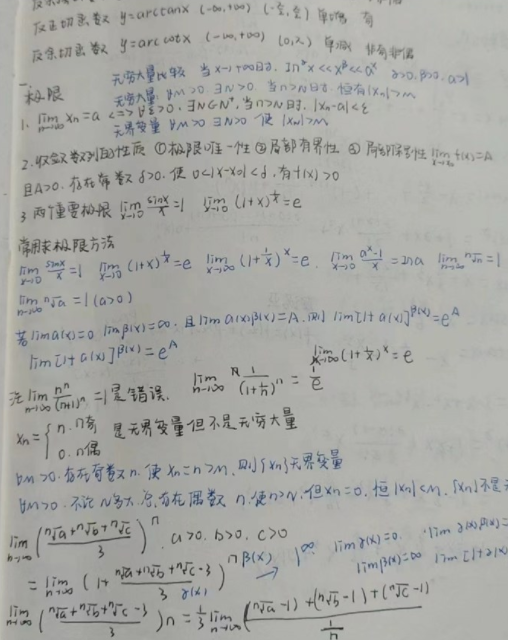 反正切函数 y=arctanx (-∞,+∞) (-π/2, π/2) 单增 有
反余切函数 y=arccotx (-∞,+∞) (0,π) 单减 非奇非偶
极限
无穷大量比较 当x→+∞时, ln^αx<<x^β<<a^x α>0,β>0,a>1
无穷大量 ∀M>0 ∃N>0 当n>N时, 恒有|xn|>M
1. lim n→∞ xn=a <=> ∀ε>0, ∃N∈N⁺, 当n>N时, |xn-a|<ε
无界变量 ∀M>0 ∃N>0 使|xn|>M
2. 收敛数列的性质 ①极限唯一性 ②局部有界性 ③局部保号性 lim f(x)=A
且A>0, 存在常数δ>0, 使0<|x-x0|<δ, 有f(x)>0
3. 两个重要极限 lim x→0 sinx/x=1 lim x→0 (1+x)^(1/x)=e
常用求极限方法
lim x→0 sinx/x=1 lim x→0 (1+x)^(1/x)=e lim x→∞ (1+1/x)^x=e. lim x→0 (a^x-1)/x=lna lim n→∞ ⁿ√n=1
lim n→∞ ⁿ√a=1 (a>0)
若limα(x)=0 limβ(x)=∞, 且limα(x)β(x)=A, 则 lim[1+α(x)]^β(x)=e^A
lim[1+α(x)]^β(x)=e^A
lim x→∞ (1+1/x)^x=e
注 lim n→∞ n^n/(n+1)^n=1是错误, lim n→∞ 1/(1+1/n)^n=1/e
xn={n, n奇 是无界变量但不是无穷大量
0, n偶
∀M>0, 存在奇数n, 使xn=n>M, 则{xn}无界变量
∀M>0, 不论N多大, 总存在偶数n, 使n>N, 但xn=0, 恒|xn|<M, {xn}不是无
lim n→∞ ((ⁿ√a+ⁿ√b+ⁿ√c)/3)^n, a>0, b>0, c>0
=lim n→∞ (1+(ⁿ√a+ⁿ√b+ⁿ√c-3)/3)^n β(x) → 1^∞ limα(x)=0. limα(x)β(x)=
α(x) limβ(x)=∞ lim[1+α(x)
lim n→∞ ((ⁿ√a+ⁿ√b+ⁿ√c-3)/3)n=1/3 lim n→∞ ((ⁿ√a-1)+(ⁿ√b-1)+(ⁿ√c-1))/(1/n)